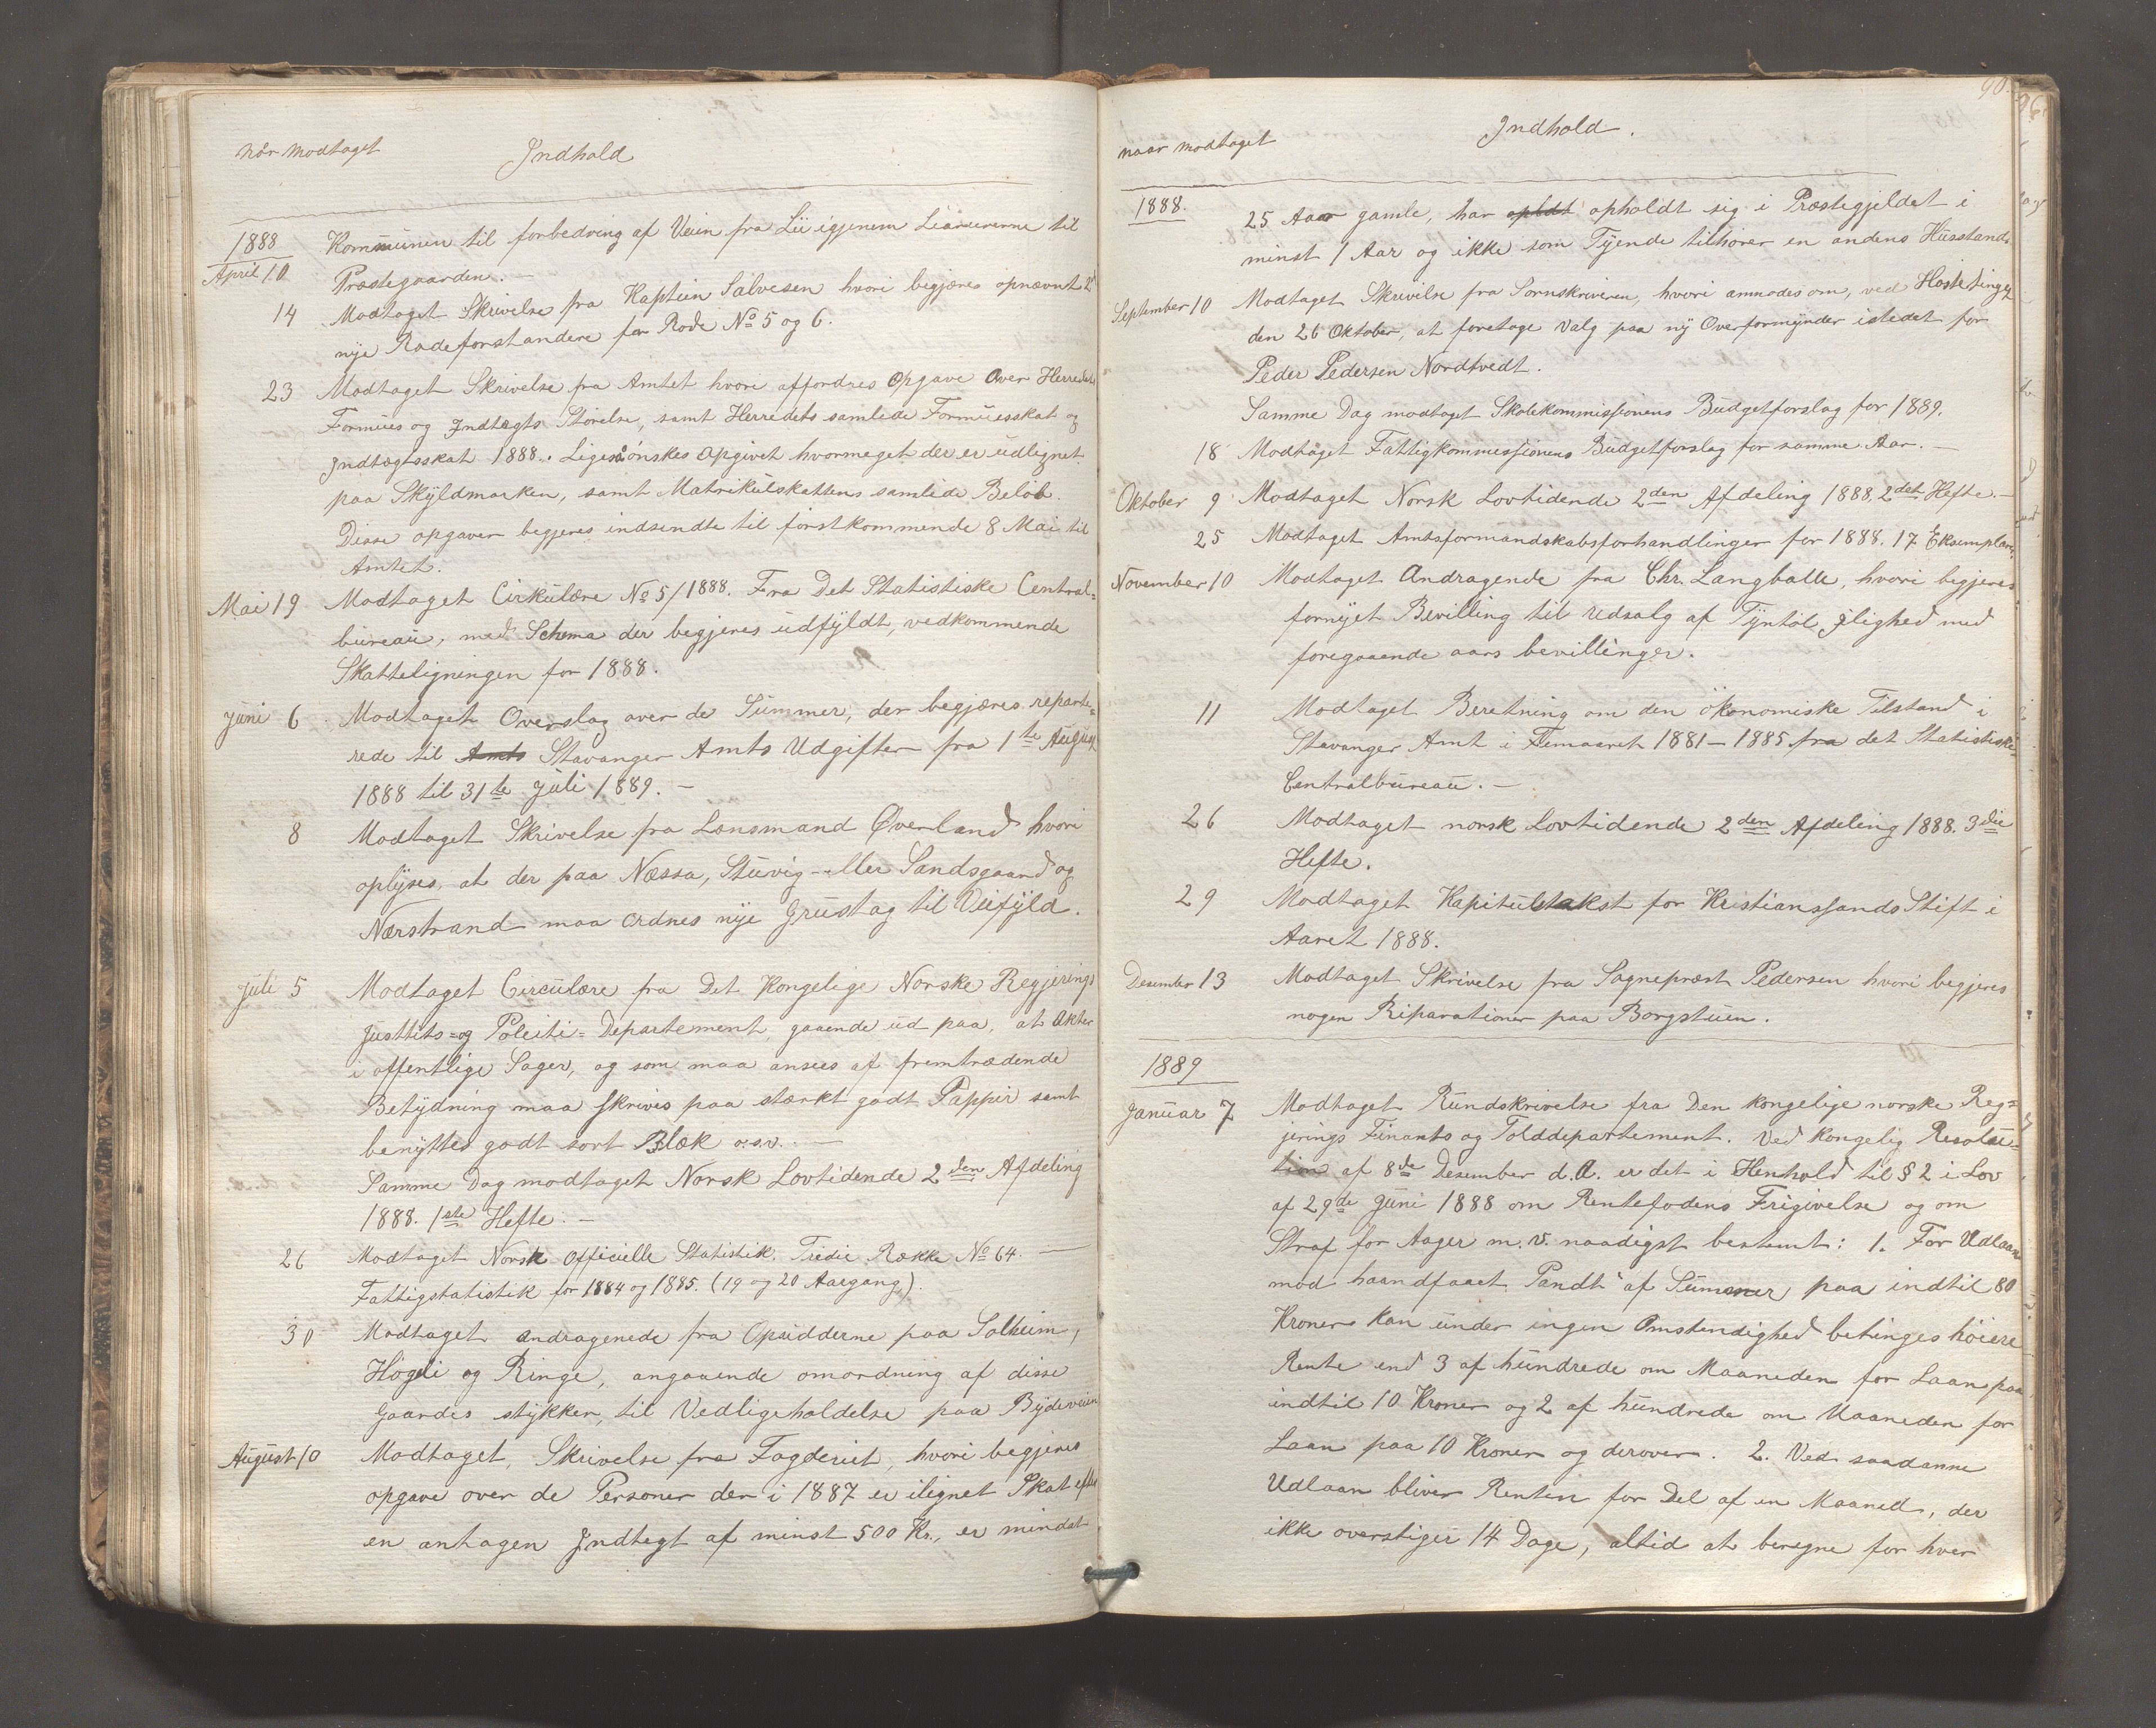 når modtaget Indhold
1888 Kommunen til forbedring af Veien fra Lii igjenem til
April 10 Præstegaarden. —
14 Modtaget Skrivelse fra Kaptein Salvesen hvori begjæres opnævnt 2
nye Rodeforstandere for Rode No 5 og 6.
23 Modtaget Skrivelse fra Amtet hvori affordres Opgave Over Herredets
Formues og Indtægts Störelse, samt Herredets samlede Formuesskat og
Indtægtsskat 1888. Ligeså önskes Opgivet hvormeget der er udlignet
paa Skyldmarken, samt Matrikulskattens samlede Belöb.
Disse opgaver begjeres indsendte til förstkommende 8 Mai til
Amtet.
Mai 19 Modtaget Cirkulære No 5/1888. Fra Det Statistiske Central=
bureau, med Schema der begjeres udfyldt, vedkommende
Skatteligningen for 1888.
Juni 6 Modtaget Overslag over de Summer, der begjæres reparte=
rede til Amts Stavanger Amts Udgifter fra 1te August
1888 til 31te Juli 1889. —
8 Modtaget Skrivelse fra Lensmand Øverland hvori
oplyses, at der paa Næssa, Stuvig- eller Sandsgaard og
Nærstrand maa ordnes nye Grustag til Veifyld.
Juli 5 Modtaget Circulære fra Det Kongelige Norske Regjerings
Justtits= og Poleiti=Departement, gaaende ud paa, at Akter
i offentlige Sager, og som maa ansees af fremtrædende
Betydning maa skrives paa stærkt godt Pappir samt
benyttes godt sort Blæk o.s.v. —
Samme Dag modtaget Norsk Lovtidende 2den Afdeling
1888. 1ste Hefte. —
26 Modtaget Norsk Officielle Statistik. Tredie Række No 64. —
Fattigstatistik for 1884 og 1885. (19 og 20 Aargang).
30 Modtaget andragenede fra Opsidderne paa Solheim,
Högeli og Ringe, angaaende omordning af disse
Gaardes stykker, til Vedligeholdelse paa Bydeveien
August 10 Modtaget, Skrivelse fra Fogderiet, hvori begjeres
opgave over de Personer der i 1887 er ilignet Skat efter
en antagen Indtegt af minst 500 Kr., er mindst
90.
naar modtaget Indhold.
1888. 25 Aar gamle, har opldt opholdt sig i Præstegjeldet i
minst 1 Aar og ikke som Tyende tilhörer en andens Husstand.
September 10 Modtaget Skrivelse fra Sornskriveren, hvori anmodes om, ved Höstetinget
den 26 Oktober, at foretage Valg paa ny Overformynder istedet for
Peder Pedersen Nordtvedt.
Samme Dag modtaget Skolekommissionens Budgetforslag for 1889.
18 Modtaget Fattigkommissionens Budgetforslag for samme Aar. —
Oktober 9 Modtaget Norsk Lovtidende 2den Afdeling 1888, 2det Hefte. —
25 Modtaget Amtsformandskabsforhandlinger for 1888. 17 Eksemplarer.
November 10 Modtaget Andragende fra Chr. Langballe, hvori begjeres
fornyet Bevilling til Udsalg af Tyntöl, i lighed med
foregaaende aars bevillinger.
11 Modtaget Beretning om den Ökonomiske Tilstand i
Stavanger Amt i Femaaret 1881–1885 fra det Statistiske
Centralbureau. —
26 Modtaget norsk Lovtidende 2den Afdeling 1888. 3die
Hefte.
29 Modtaget Kapitulstakst for Kristianssands Stift i
Aaret 1888.
Desember 13 Modtaget Skrivelse fra Sogneprest Pedersen hvori begjeres
nogen Riparationer paa Borgstuen.
1889
Januar 7 Modtaget Rundskrivelse fra Den kongelige norske Reg=
jerings Finants og Tolddepartement. Ved Kongelig Resolu=
tion af 8de Desember d.A. er det i Henhold til § 2 i Lov
af 29de Juni 1888 om Rentefodens Frigivelse og om
Straf for Aager m.v. naadigst bestemt: 1. For Udlaan
mod haandfaaet Pandt af Summer paa indtil 80
Kroner kan under ingen Omstendighed betinges höiere
Rente end 3 af hundrede om Maaneden for Laan paa
indtil 10 Kroner og 2 af hundrede om Maaneden for
Laan paa 10 Kroner og derover. 2. Ved saadanne
Udlaan bliver Renten for Del af en Maaned, der
ikke overstiger 14 Dage, altid at beregne for hver